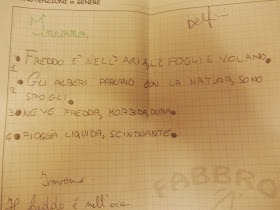 MANUTENZIONI in GENERE
Inverno
1 • FREDDO E' NELL'ARIA, LE FOGLIE VOLANO.
2 • GLI ALBERI PARLANO CON LA NATURA, SONO
SPOGLI.
3 • NEVE FREDDA, MORBIDA, DURA.
4 • PIOGGIA LIQUIDA, SCINTINANTE.
FABBRO
Inverno
Il freddo é nell'aria